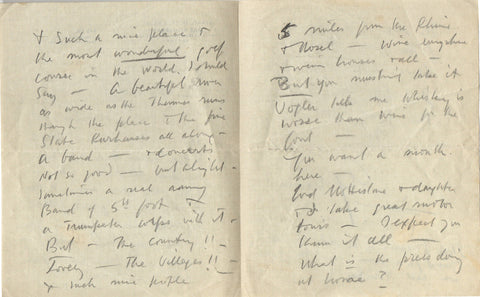 & such a nice place &
the most wonderful golf
course in the World I should
say — A beautiful river
as wide as the Thames runs
through the place & the fine
State Kurhauses all along —
A band — & concerts
Not so good — but alright —
sometimes a real army
Band of 5th foot &
a trumpeter corps with it —
But — The Country!! —
Lovely — The Villages!! —
& such nice people
5 miles from the Rhine
& Mosel — Wine everywhere
& wine houses & all —
But you mustn't take it
Vogler tells me Whiskey is
worse than wine for the
Gout —
You want a month
here —
Lord & daughter
& I take great motor
tours — I expect you
know it all —
What is the press doing
at home?